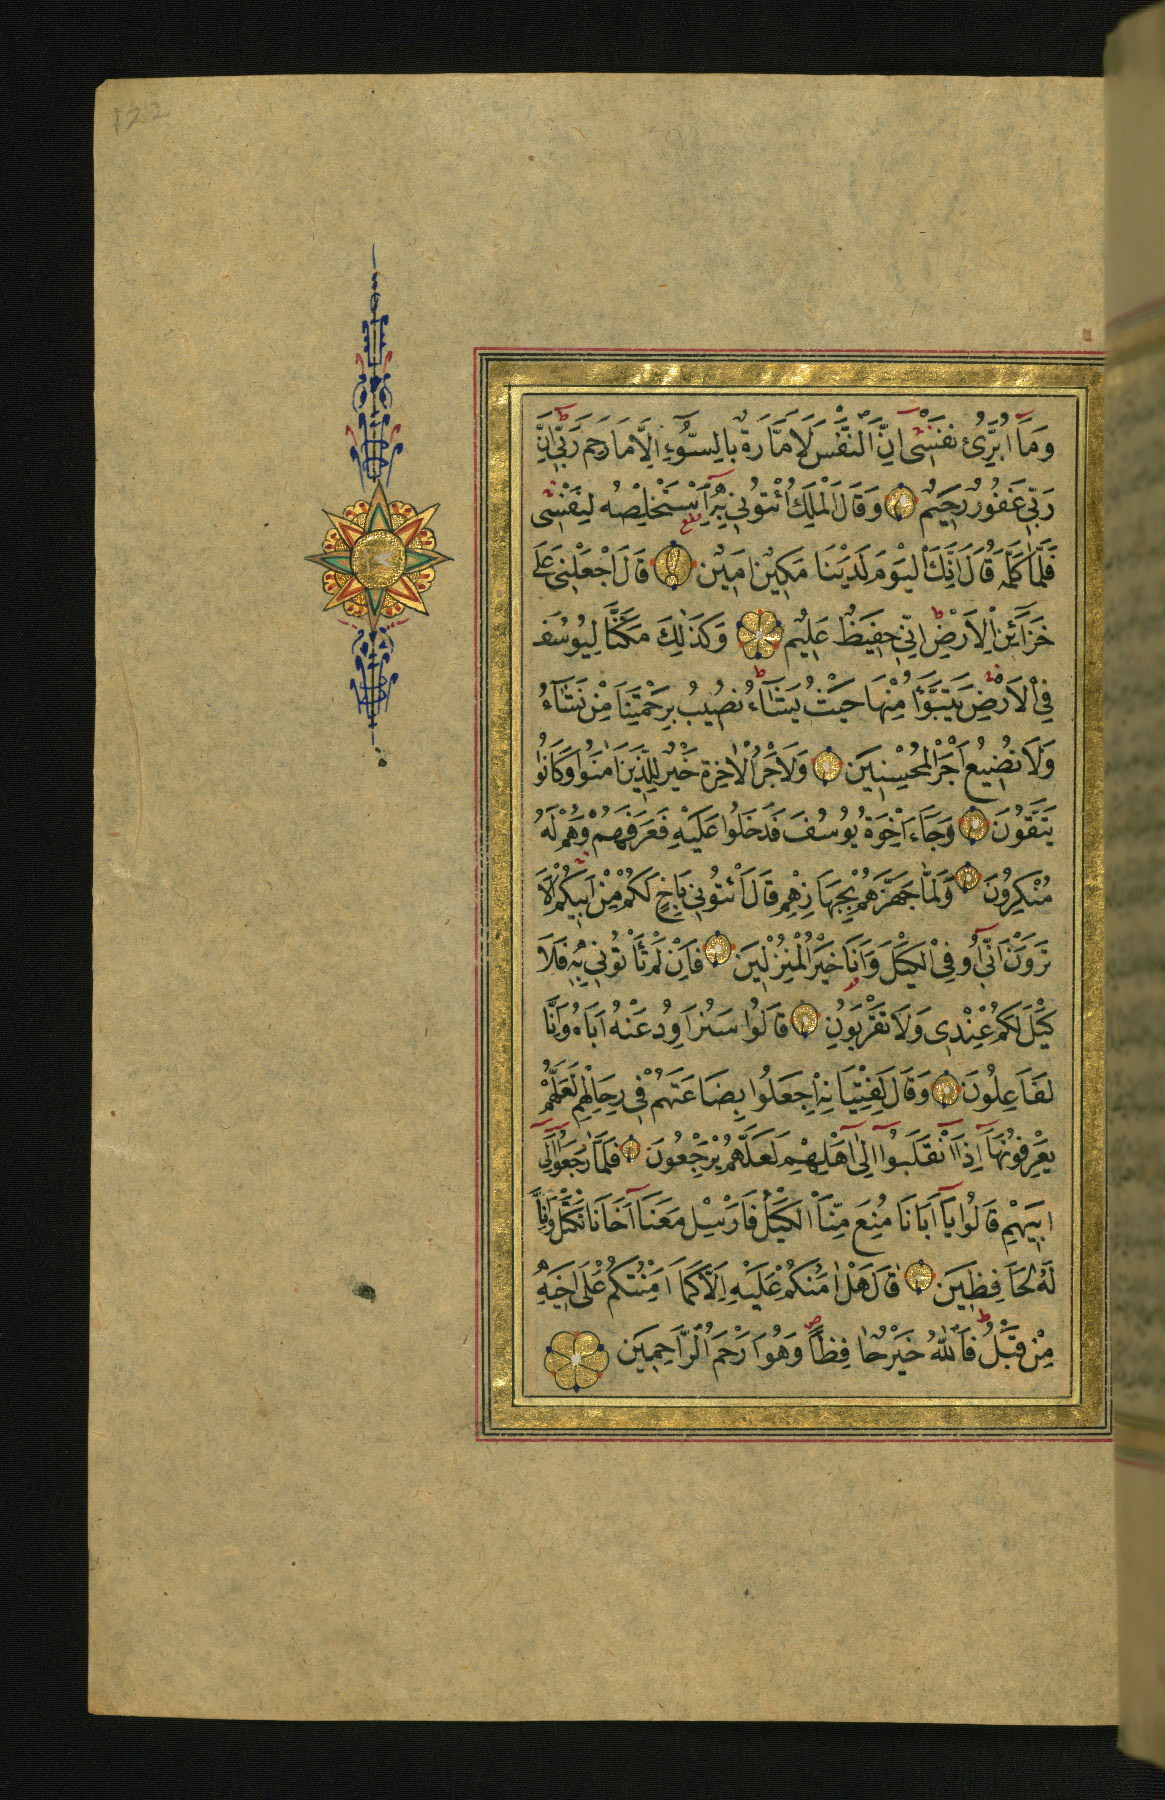 122
وَمَٓا اُبَرِّئُ نَفْسٖٓى اِنَّ النَّفْسَ لَاَمَّارَةٌ بِالسُّوٓءِ اِلَّا مَا رَحِمَ رَبّٖى اِنَّ
رَبّٖى غَفُورٌ رَحٖيمٌ وَقَالَ الْمَلِكُ ائْتُونٖى بِهٖٓ اَسْتَخْلِصْهُ لِنَفْسٖى
فَلَمَّا كَلَّمَهُ قَالَ اِنَّكَ الْيَوْمَ لَدَيْنَا مَكٖينٌ اَمٖينٌ قَالَ اجْعَلْنٖى عَلٰى
خَزَٓائِنِ الْاَرْضِ اِنّٖى حَفٖيظٌ عَلٖيمٌ وَكَذٰلِكَ مَكَّنَّا لِيُوسُفَ
فِى الْاَرْضِ يَتَبَوَّؤُا مِنْهَا حَيْثُ يَشَٓاءُ نُصٖيبُ بِرَحْمَتِنَا مَنْ نَشَٓاءُ
وَلَا نُضٖيعُ اَجْرَ الْمُحْسِنٖينَ وَلَاَجْرُ الْاٰخِرَةِ خَيْرٌ لِلَّذٖينَ اٰمَنُوا وَكَانُوا
يَتَّقُونَ وَجَٓاءَ اِخْوَةُ يُوسُفَ فَدَخَلُوا عَلَيْهِ فَعَرَفَهُمْ وَهُمْ لَهُ
مُنْكِرُونَ وَلَمَّا جَهَّزَهُمْ بِجَهَازِهِمْ قَالَ ائْتُونٖى بِاَخٍ لَكُمْ مِنْ اَبٖيكُمْ اَلَا
تَرَوْنَ اَنّٖٓى اُوفِى الْكَيْلَ وَاَنَا خَيْرُ الْمُنْزِلٖينَ فَاِنْ لَمْ تَاْتُونٖى بِهٖ فَلَا
كَيْلَ لَكُمْ عِنْدٖى وَلَا تَقْرَبُونِ قَالُوا سَنُرَاوِدُ عَنْهُ اَبَاهُ وَاِنَّا
لَفَاعِلُونَ وَقَالَ لِفِتْيَانِهِ اجْعَلُوا بِضَاعَتَهُمْ فٖى رِحَالِهِمْ لَعَلَّهُمْ
يَعْرِفُونَهَٓا اِذَا انْقَلَبُٓوا اِلٰٓى اَهْلِهِمْ لَعَلَّهُمْ يَرْجِعُونَ فَلَمَّا رَجَعُٓوا اِلٰٓى
اَبٖيهِمْ قَالُوا يَٓا اَبَانَا مُنِعَ مِنَّا الْكَيْلُ فَاَرْسِلْ مَعَنَٓا اَخَانَا نَكْتَلْ وَاِنَّا
لَهُ لَحَافِظٖينَ قَالَ هَلْ اٰمَنُكُمْ عَلَيْهِ اِلَّا كَمَٓا اَمِنْتُكُمْ عَلٰٓى اَخٖيهِ
مِنْ قَبْلُ فَاللّٰهُ خَيْرٌ حَافِظًا وَهُوَ اَرْحَمُ الرَّاحِمٖينَ